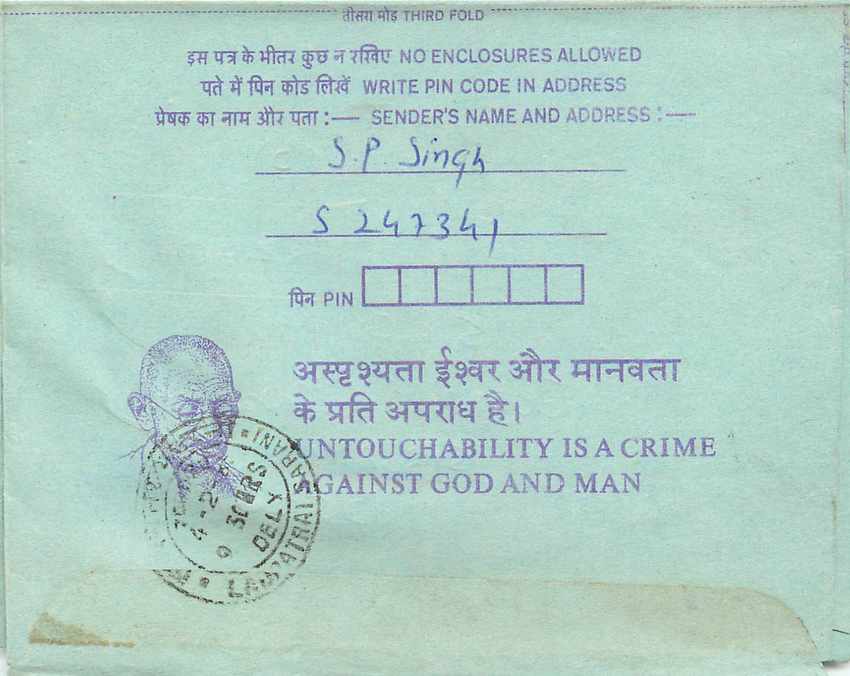 तीसरा मोड़ THIRD FOLD
इस पत्र के भीतर कुछ न रखिए NO ENCLOSURES ALLOWED
पते में पिन कोड लिखें WRITE PIN CODE IN ADDRESS
प्रेषक का नाम और पता :— SENDER'S NAME AND ADDRESS :—
S.P. Singh
S 247341
पिन PIN
अस्पृश्यता ईश्वर और मानवता
के प्रति अपराध है।
UNTOUCHABILITY IS A CRIME
AGAINST GOD AND MAN
SARANI
4-2-
30 HRS
DELY